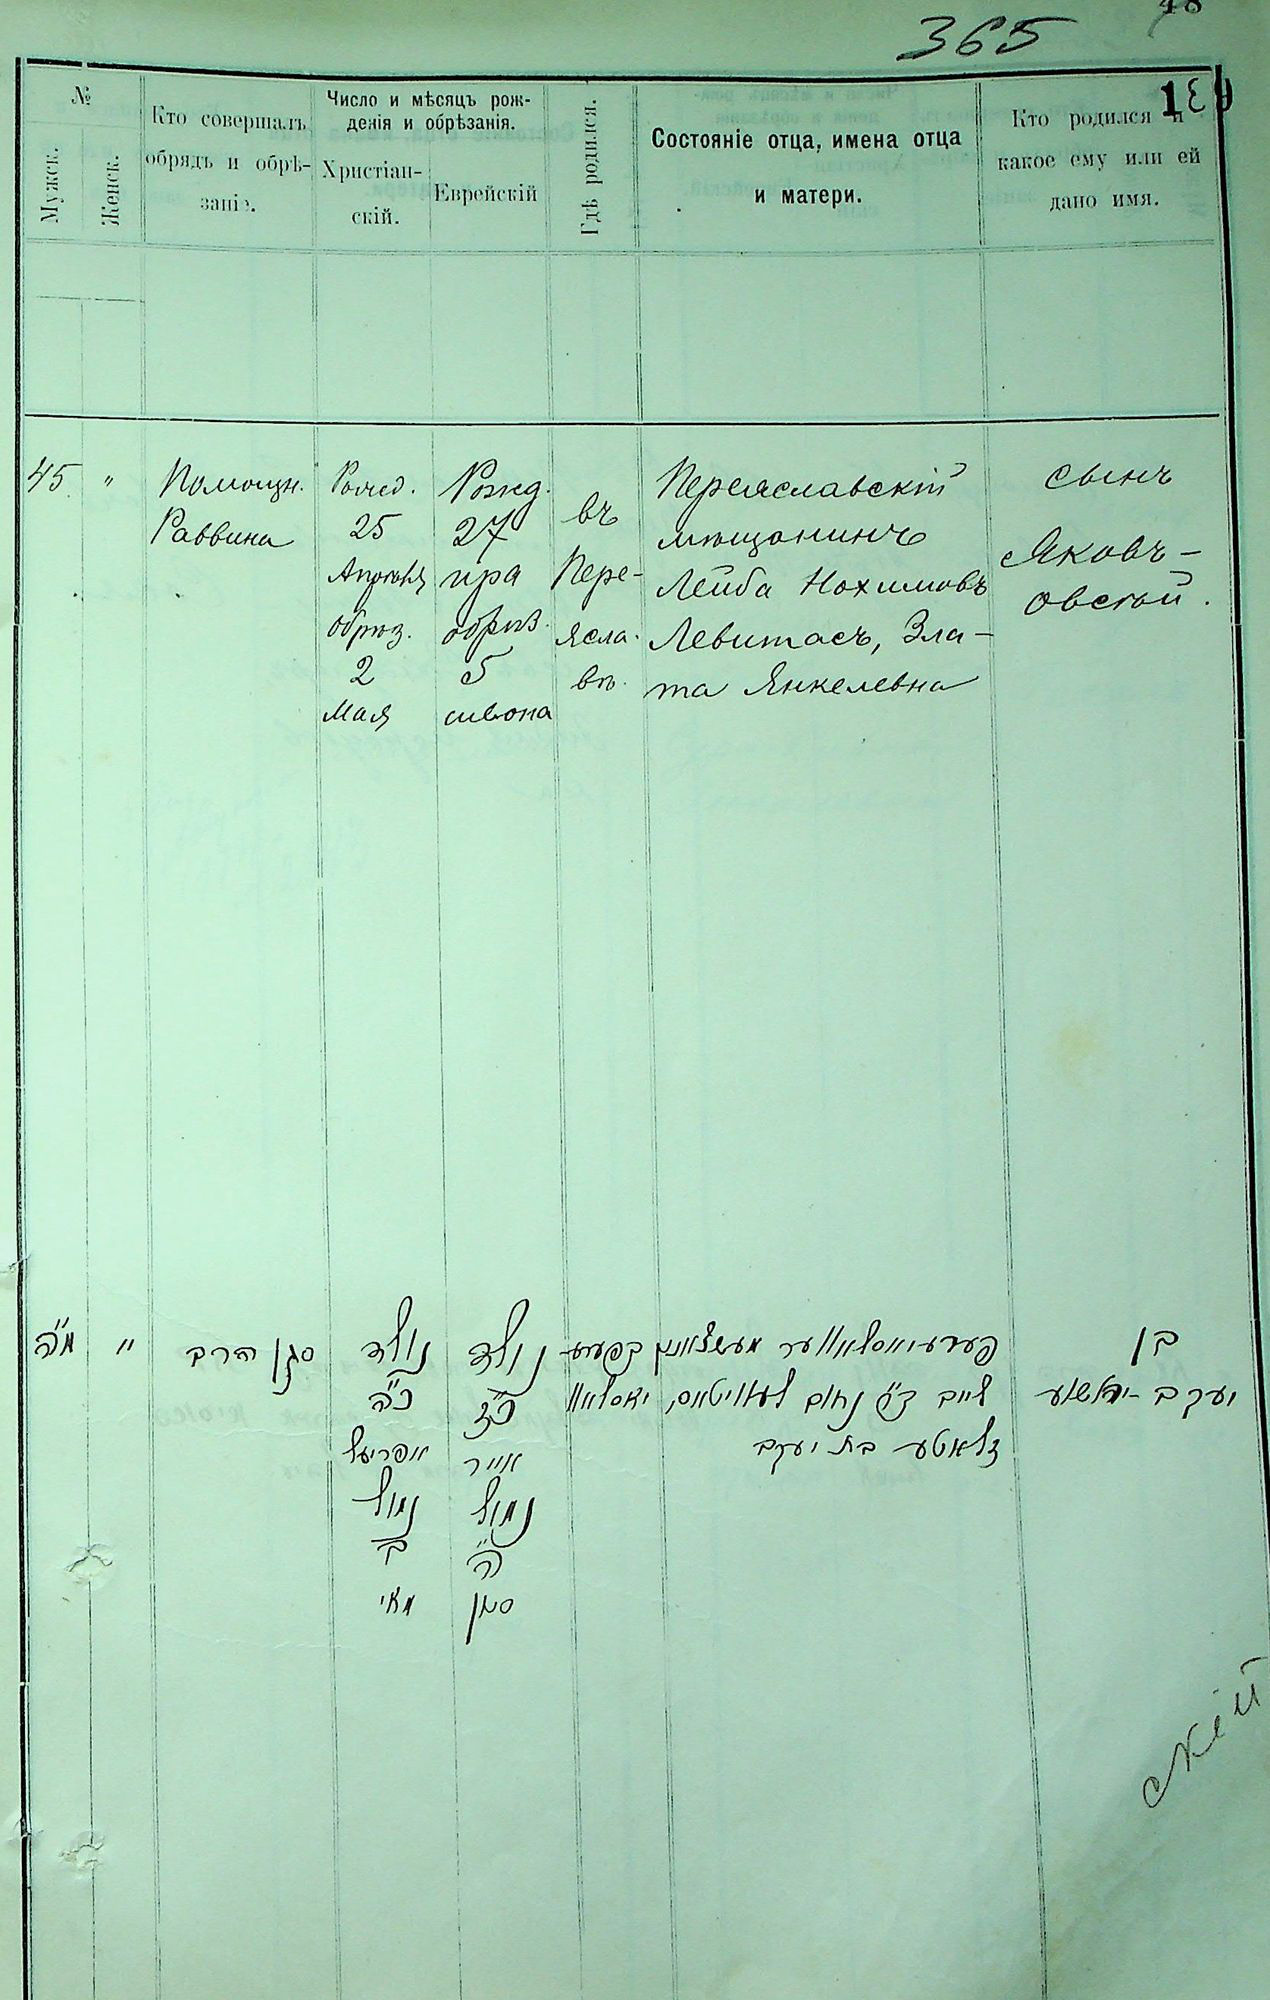 48
365
139
№
Мужск.
Женск.
Кто совершалъ
обрядъ и обрѣ-
заніе.
Число и мѣсяцъ рож-
денія и обрѣзанія.
Христіан-
скій.
Еврейскій
Гдѣ родился.
Состояніе отца, имена отца
и матери.
Кто родился и
какое ему или ей
дано имя.
45
"
Помощн.
Раввина
Рожд.
25
Апрѣля
обрѣз.
2
Мая
Рожд.
27
ира
обрѣз.
5
сивона
въ
Пере-
ясла-
вѣ.
Переяславскій
мѣщанинъ
Лейба Нохимовъ
Левитасъ, Зла-
та Янкелевна
сынъ
Яковъ-
овсѣй.
מ"ה
"
סגן הרב
נולד
כ"ה
אפריעל
נמול
ב'
מאי
נולד
כ"ז
אייר
נמול
ה'
סיון
בפערע
יאסלאוו
פערעיאסלאווער מעשצאנין
לייב ב"ר נחום לעוויטאס,
זלאטע בת יעקב
בן
יעקב-יהושע
скій